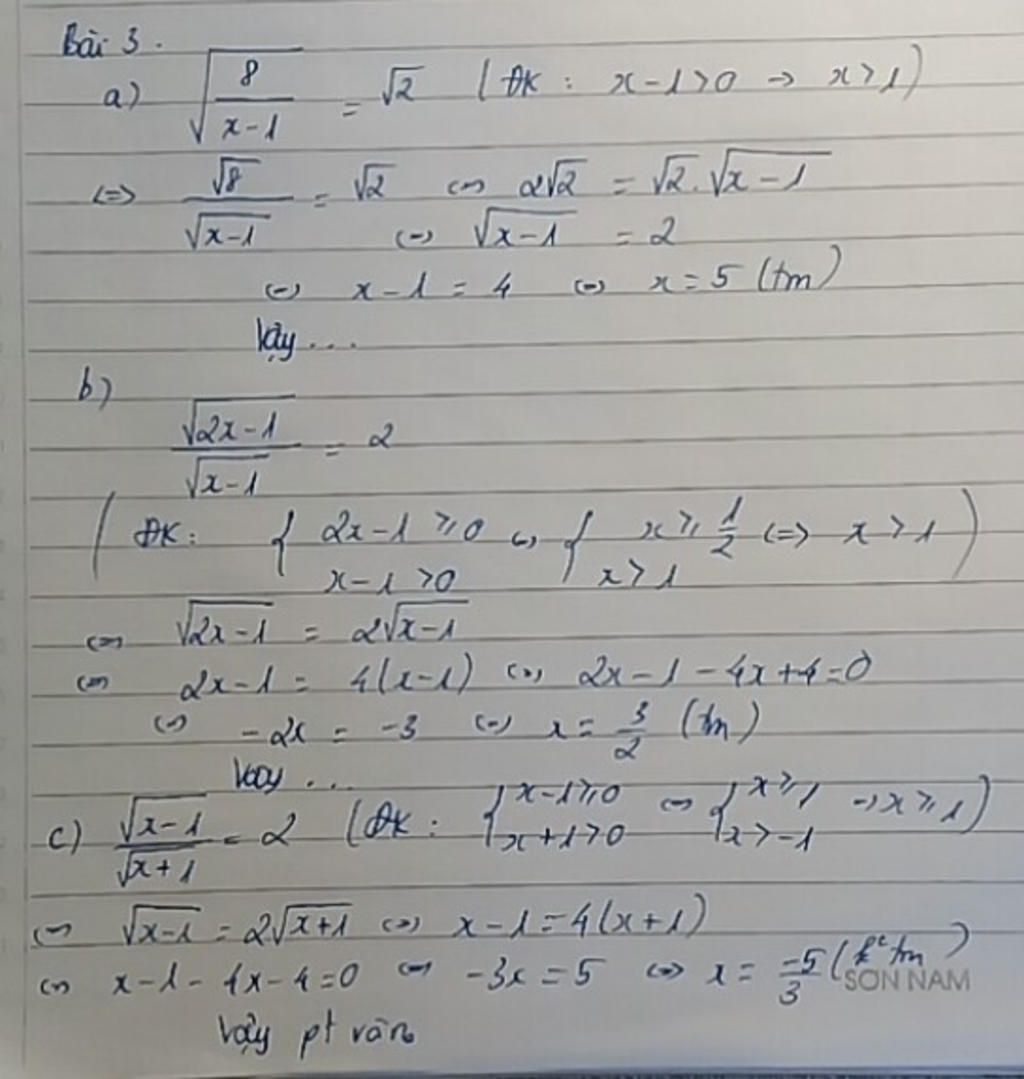 Bài 3.
a) √(8/(x-1)) = √2 (ĐK : x-1>0 → x>1)
<=> √8/√(x-1) = √2 <=> 2√2 = √2.√(x-1)
<=> √(x-1) = 2
<=> x-1 = 4 <=> x = 5 (tm)
Vậy ...
b)
√(2x-1)/√(x-1) = 2
(ĐK: { 2x-1 ⩾ 0 ; x-1 >0 <=> { x ⩾ 1/2 ; x > 1 <=> x > 1)
<=> √(2x-1) = 2√(x-1)
<=> 2x-1 = 4(x-1) <=> 2x-1-4x+4=0
<=> -2x = -3 <=> x = 3/2 (tm)
Vậy ...
c) √(x-1)/√(x+1) = 2 (ĐK: { x-1⩾0 ; x+1>0 <=> { x⩾1 ; x>-1 → x⩾1)
<=> √(x-1) = 2√(x+1) <=> x-1 = 4(x+1)
<=> x-1-4x-4=0 <=> -3x = 5 <=> x = -5/3 (k° tm)
SON NAM
Vậy pt vân